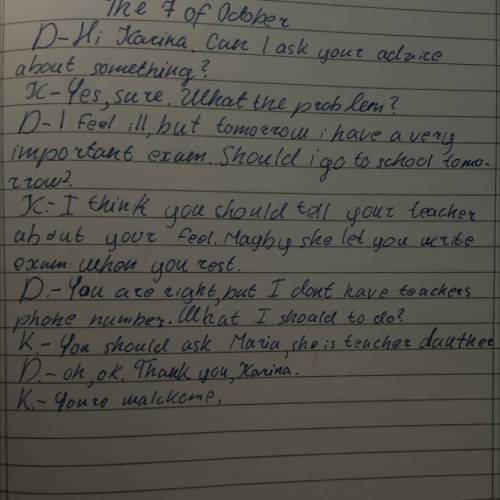 The 7 of October
D-Hi Karina. Can I ask your advice
about something?
K-Yes, sure. What the problem?
D-I feel ill, but tomorrow i have a very
important exam. Should i go to school tomo-
rrow?
K-I think you should tell your teacher
about your feel. Mayby she let you write
exam when you rest.
D.-You are right, but I dont have teachers
phone number. What I should to do?
K.-You should ask Maria, she is teacher dauther
D.-oh, ok. Thank you, Karina.
K.-Youre malckome.